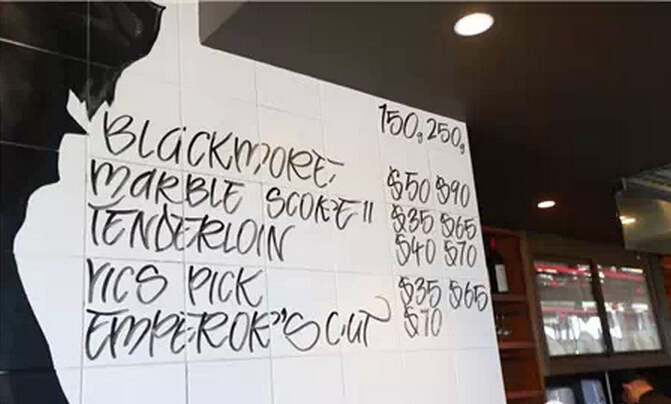 150g 250g
BLACKMORE:
MARBLE SCORE 11 $50 $90
TENDERLOIN $35 $65
$40 $70
VICS PICK $35 $65
EMPEROR'S CUT $70